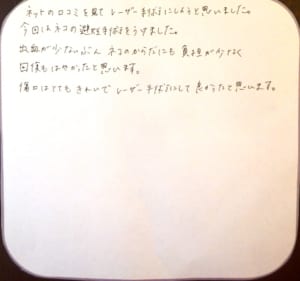 ネットの口コミを見て レーザー手術にしようと思いました。
今回はネコの避妊手術をうけました。
出血が少ないぶん ネコのからだにも 負担が少なく
回復もはやかったと思います。
傷口はとてもきれいで レーザー手術にして 良かったと思います。